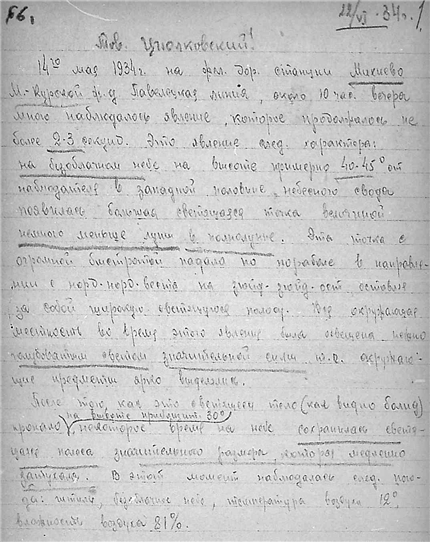 66.
22/VI-34г.
Тов. Циолковский!
14го мая 1934г. на жел. дор. станции Михнево
М.-Курской ж.д. Павелецкая линия, около 10 час. вечера
мною наблюдалось явление, которое продолжалось не
более 2-3 секунд. Это явление след. характера:
на безоблачном небе на высоте примерно 40-45° от
наблюдателя в западной половине небесного свода
появилась большая светящаяся точка величиной
немного меньше луны в полнолуние. Эта точка с
огромной быстротой падала по параболе в направле-
нии с норд-норд-веста на зюйд-зюйд-ост оставляя
за собой широкую светящуюся полосу. Вся окружающая
местность во время этого явления была освещена
голубоватым светом значительной силы т.е. окружаю-
щие предметы ярко выделялись.
После того, как это светящееся тело (как видно болид)
на высоте приблизит. 30°
пропало некоторое время на небе сохранилась светя-
щаяся полоса значительного размера которая медленно
потухала. В этот момент наблюдалась след. пого-
да: штиль, безоблачное небе, температура воздуха 12°,
влажность воздуха 81%.